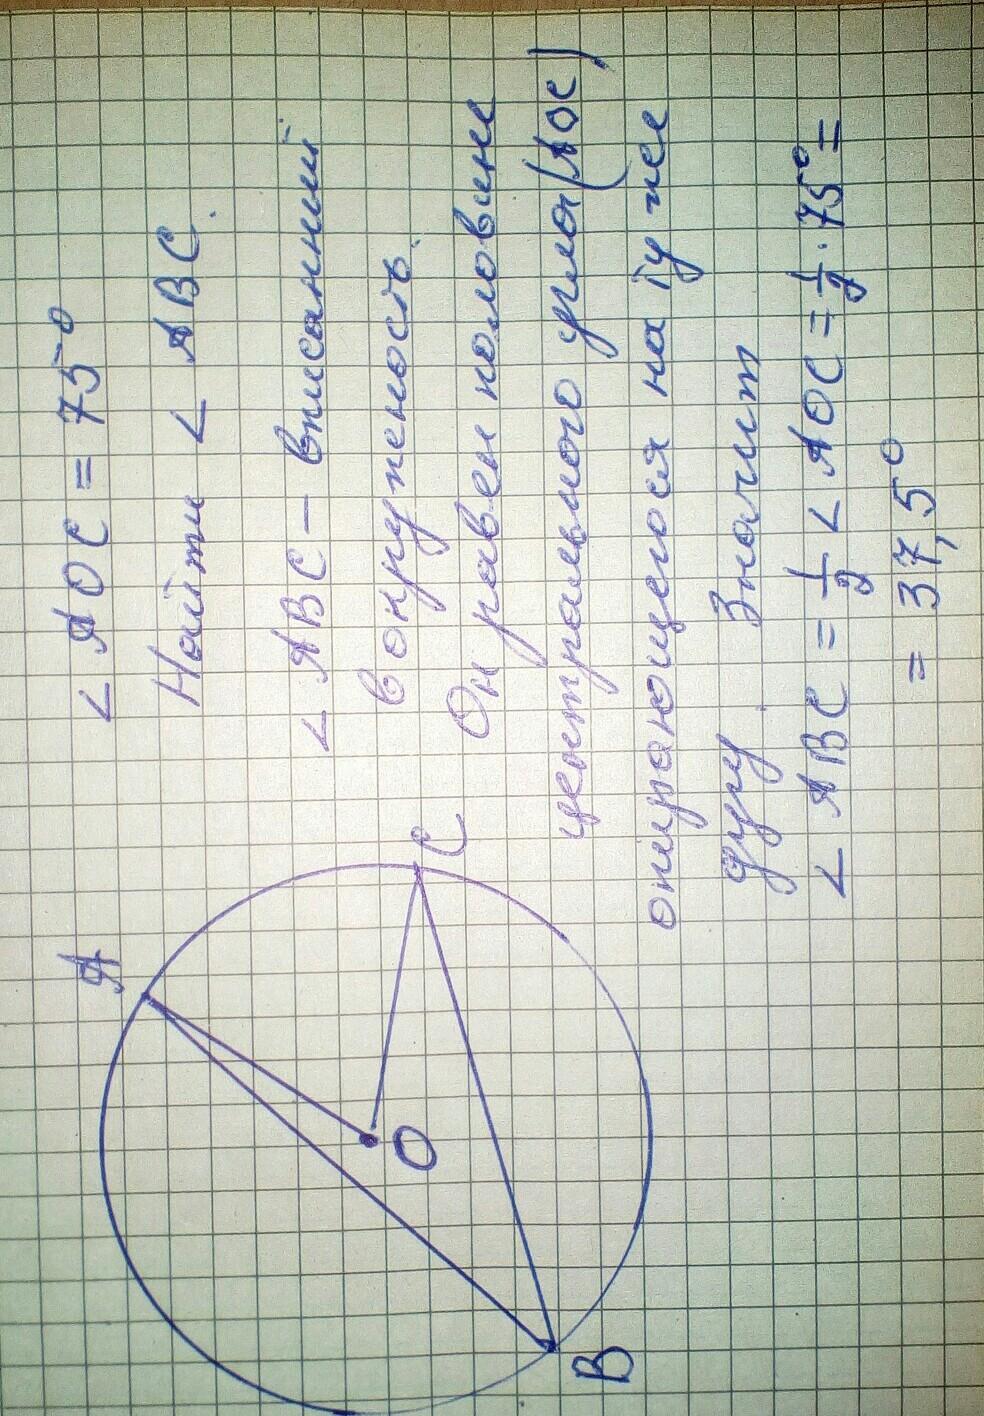 ∠ AOC = 75°
Найти ∠ ABC.
∠ ABC – вписанний
в окружность.
Он равен половине
центрального угла (AOC)
опирающегося на ту же
дугу. Значит
∠ ABC = 1/2 ∠ AOC = 1/2 · 75° =
= 37,5°
A
C
O
B